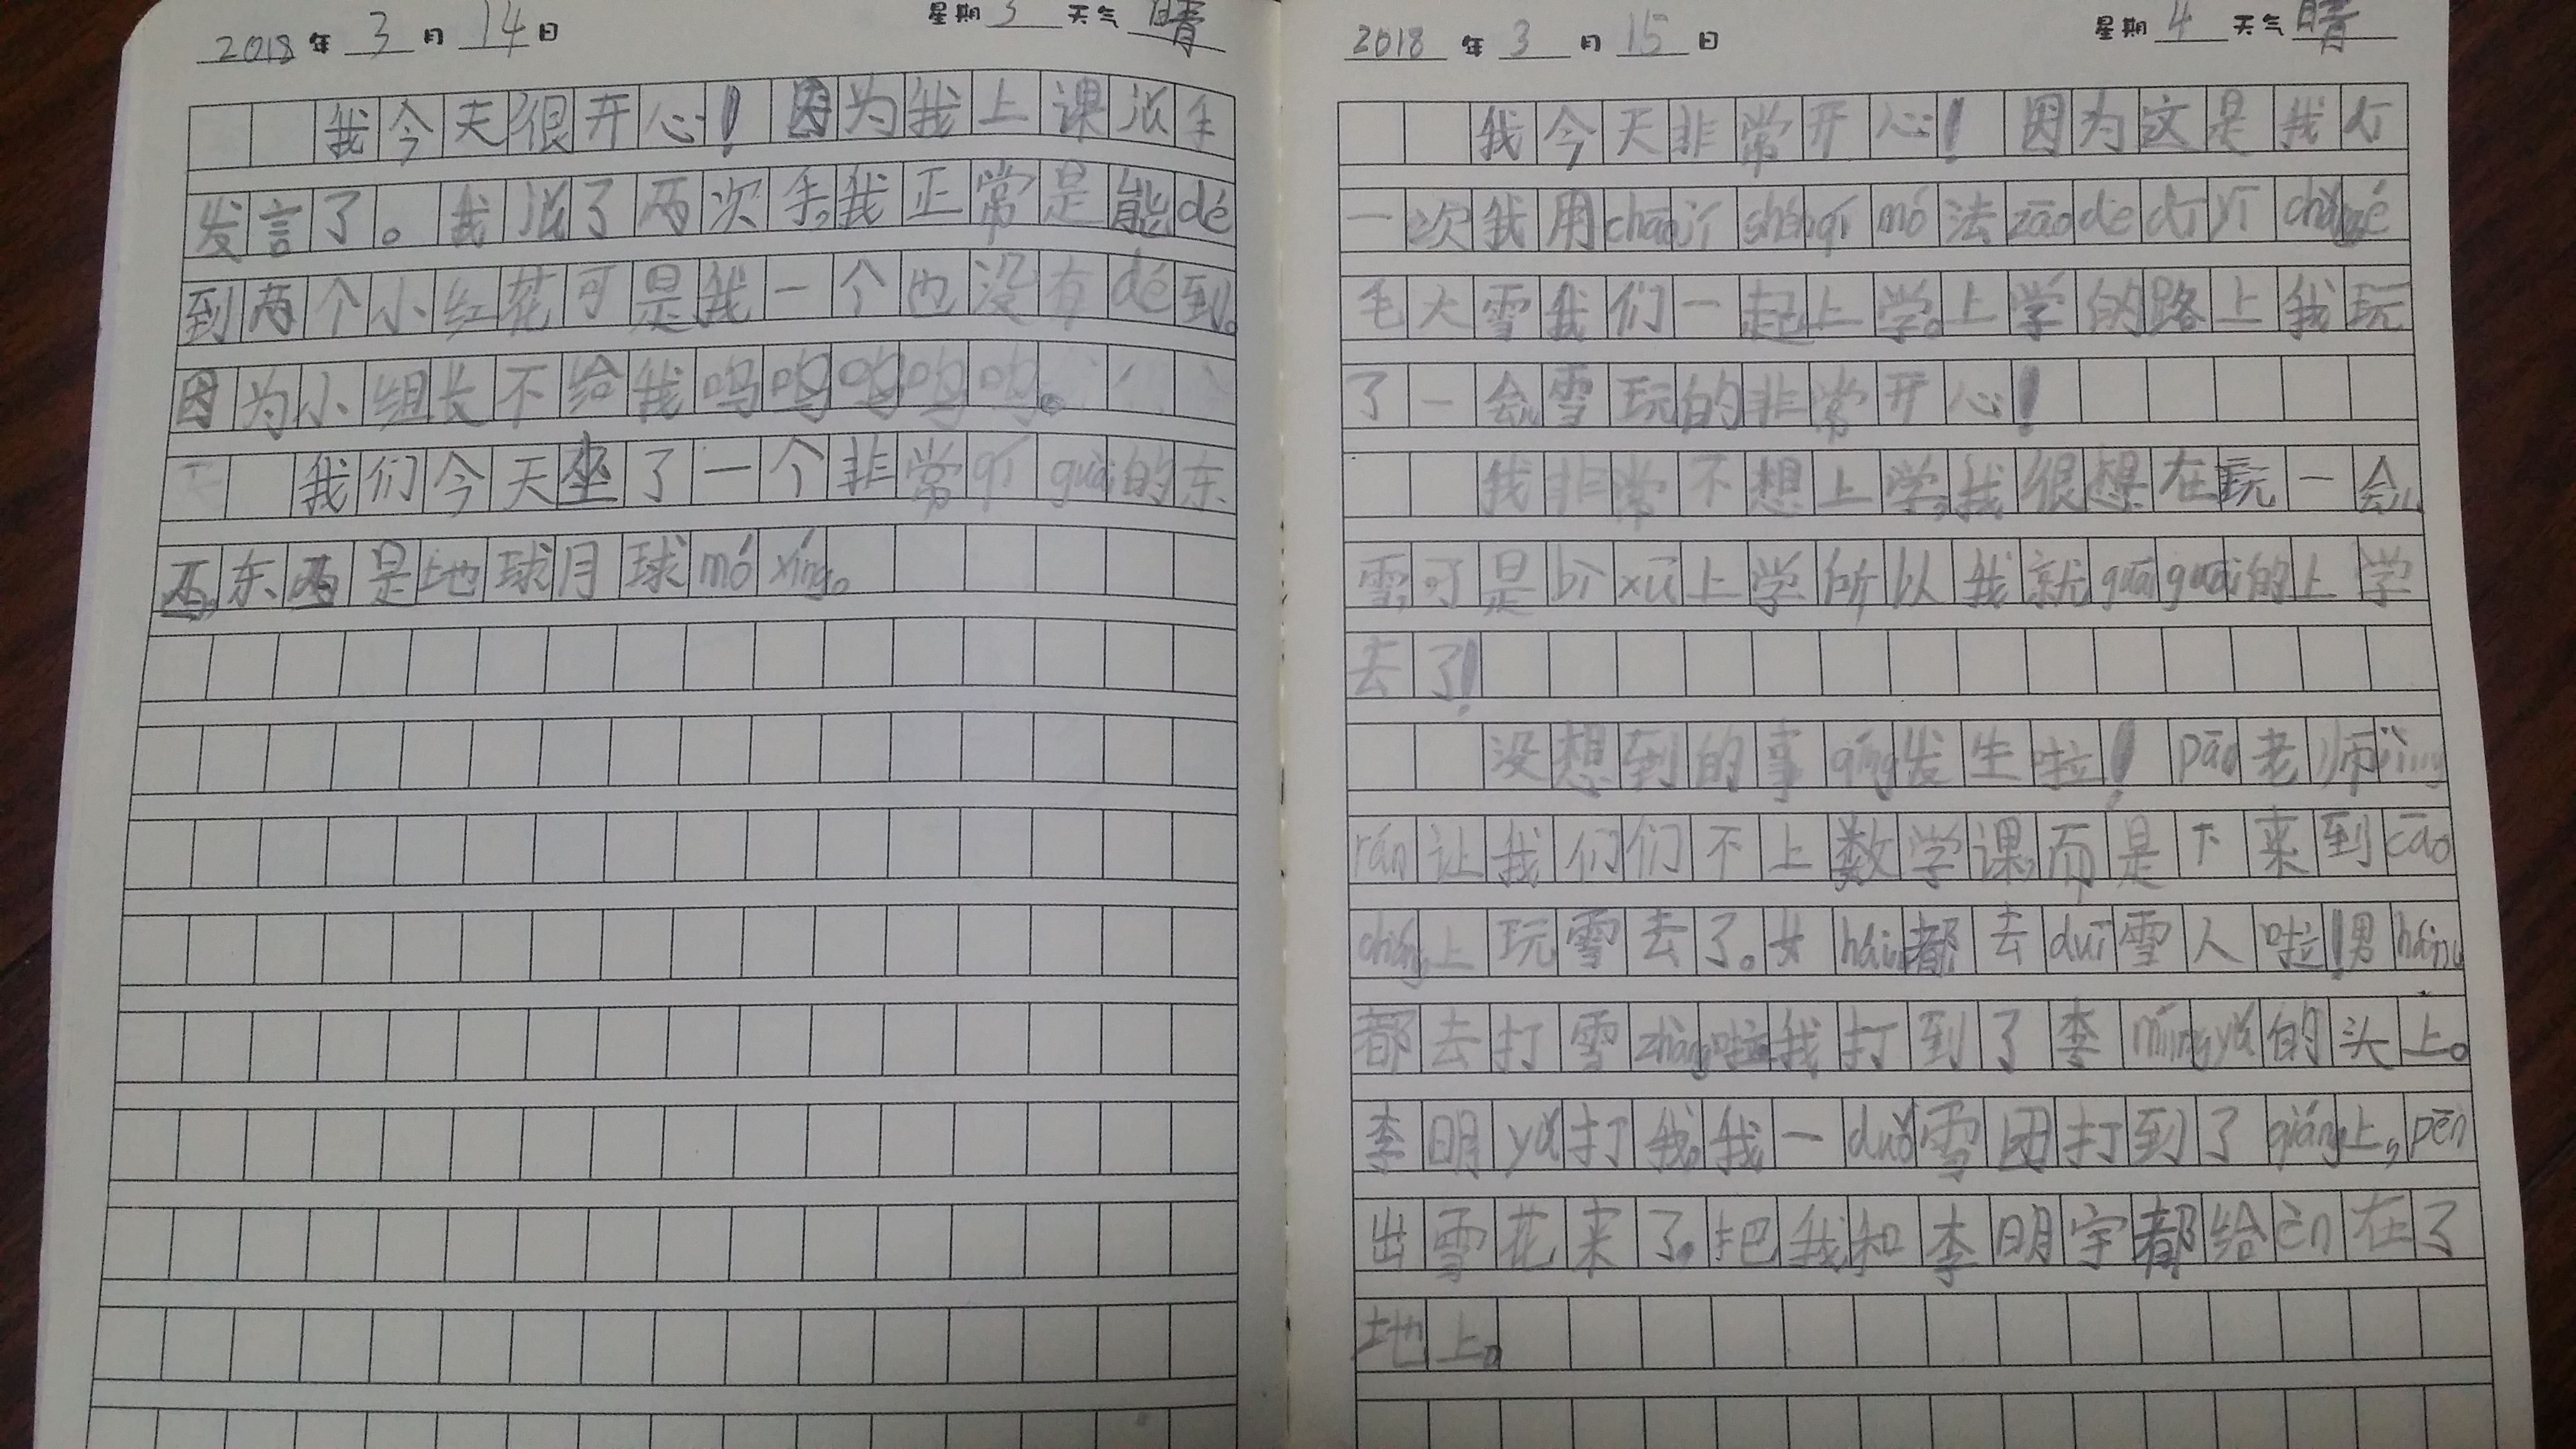 2018年3月14日 星期3天气晴
我今天很开心!因为我上课派手
发言了。我派了两次手,我正常是能dé
到两个小红花可是我一个也没有dé到。
因为小组长不给我呜呜呜呜呜。
我们今天坐了一个非常qí guài的东
西,东西是地球月球mó xíng。
2018年3月15日 星期4天气晴
我今天非常开心!因为这是我dì
一次我用chāojí shénqí mó法zào de dì yī chǎng é
毛大雪我们一起上学。上学的路上我玩
了一会儿雪玩的非常开心!
我非常不想上学,我很想在玩一会儿
雪,可是bì xū上学所以我就guāi guāi的上学
去了!
没想到的事qíng发生啦!pāo老师jìng
rán让我们们不上数学课,而是下来到cāo
chǎng上玩雪去了。女hái都去duī雪人啦!男hái
都去打雪zhàng啦我打到了李míng yǔ的头上。
李明yǔ打我,我一duǒ雪团打到了qiáng上,pēn
出雪花来了。把我和李明宇都给èn在了
地上。